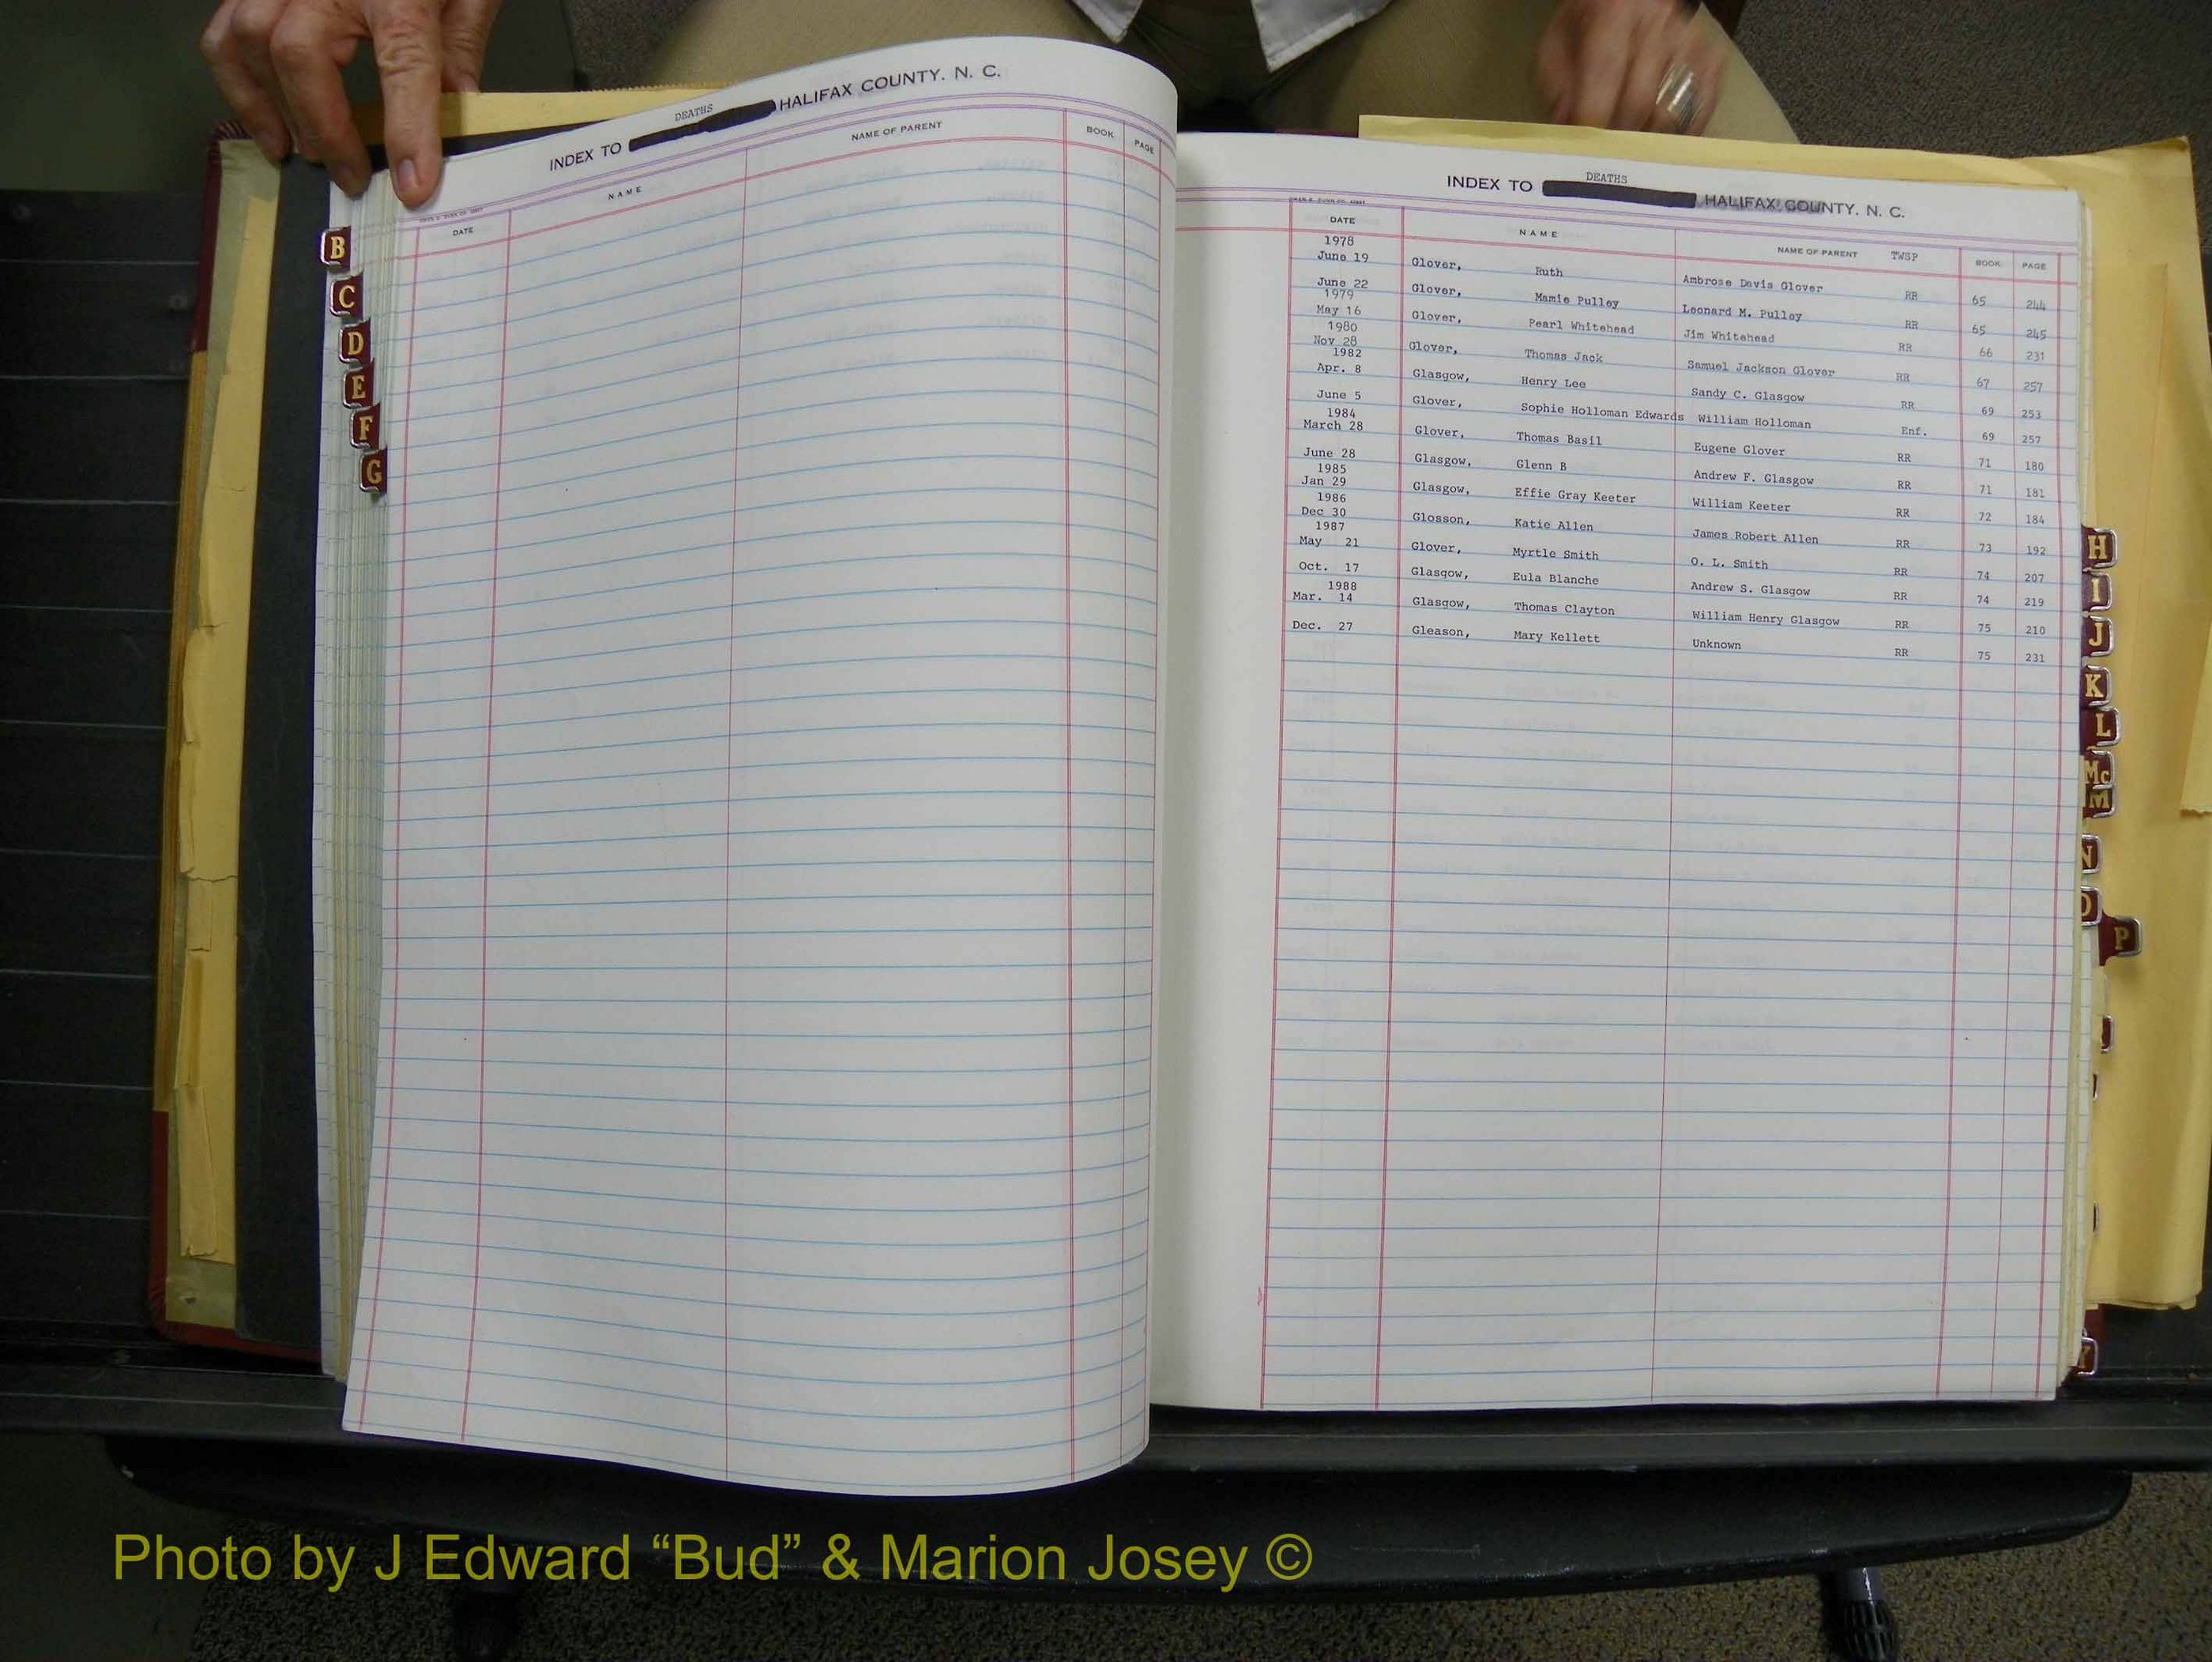 INDEX TO DEATHS HALIFAX COUNTY. N. C.
DATE NAME NAME OF PARENT BOOK PAGE
B
C
D
E
F
G
INDEX TO DEATHS HALIFAX COUNTY. N. C.
DATE NAME NAME OF PARENT TWSP BOOK PAGE
1978
June 19 Glover, Ruth Ambrose Davis Glover RR 65 244
June 22 Glover, Mamie Pulley Leonard M. Pulley RR 65 245
1979
May 16 Glover, Pearl Whitehead Jim Whitehead RR 66 231
1980
Nov 28 Glover, Thomas Jack Samuel Jackson Glover RR 67 257
1982
Apr. 8 Glasgow, Henry Lee Sandy C. Glasgow RR 69 253
June 5 Glover, Sophie Holloman Edwards William Holloman Enf. 69 257
1984
March 28 Glover, Thomas Basil Eugene Glover RR 71 180
June 28 Glasgow, Glenn B Andrew F. Glasgow RR 71 181
1985
Jan 29 Glasgow, Effie Gray Keeter William Keeter RR 72 184
1986
Dec 30 Glosson, Katie Allen James Robert Allen RR 73 192
1987
May 21 Glover, Myrtle Smith O. L. Smith RR 74 207
Oct. 17 Glasgow, Eula Blanche Andrew S. Glasgow RR 74 219
1988
Mar. 14 Glasgow, Thomas Clayton William Henry Glasgow RR 75 210
Dec. 27 Gleason, Mary Kellett Unknown RR 75 231
H
I
J
K
L
Mc
M
N
O
P
Photo by J Edward “Bud” & Marion Josey ©